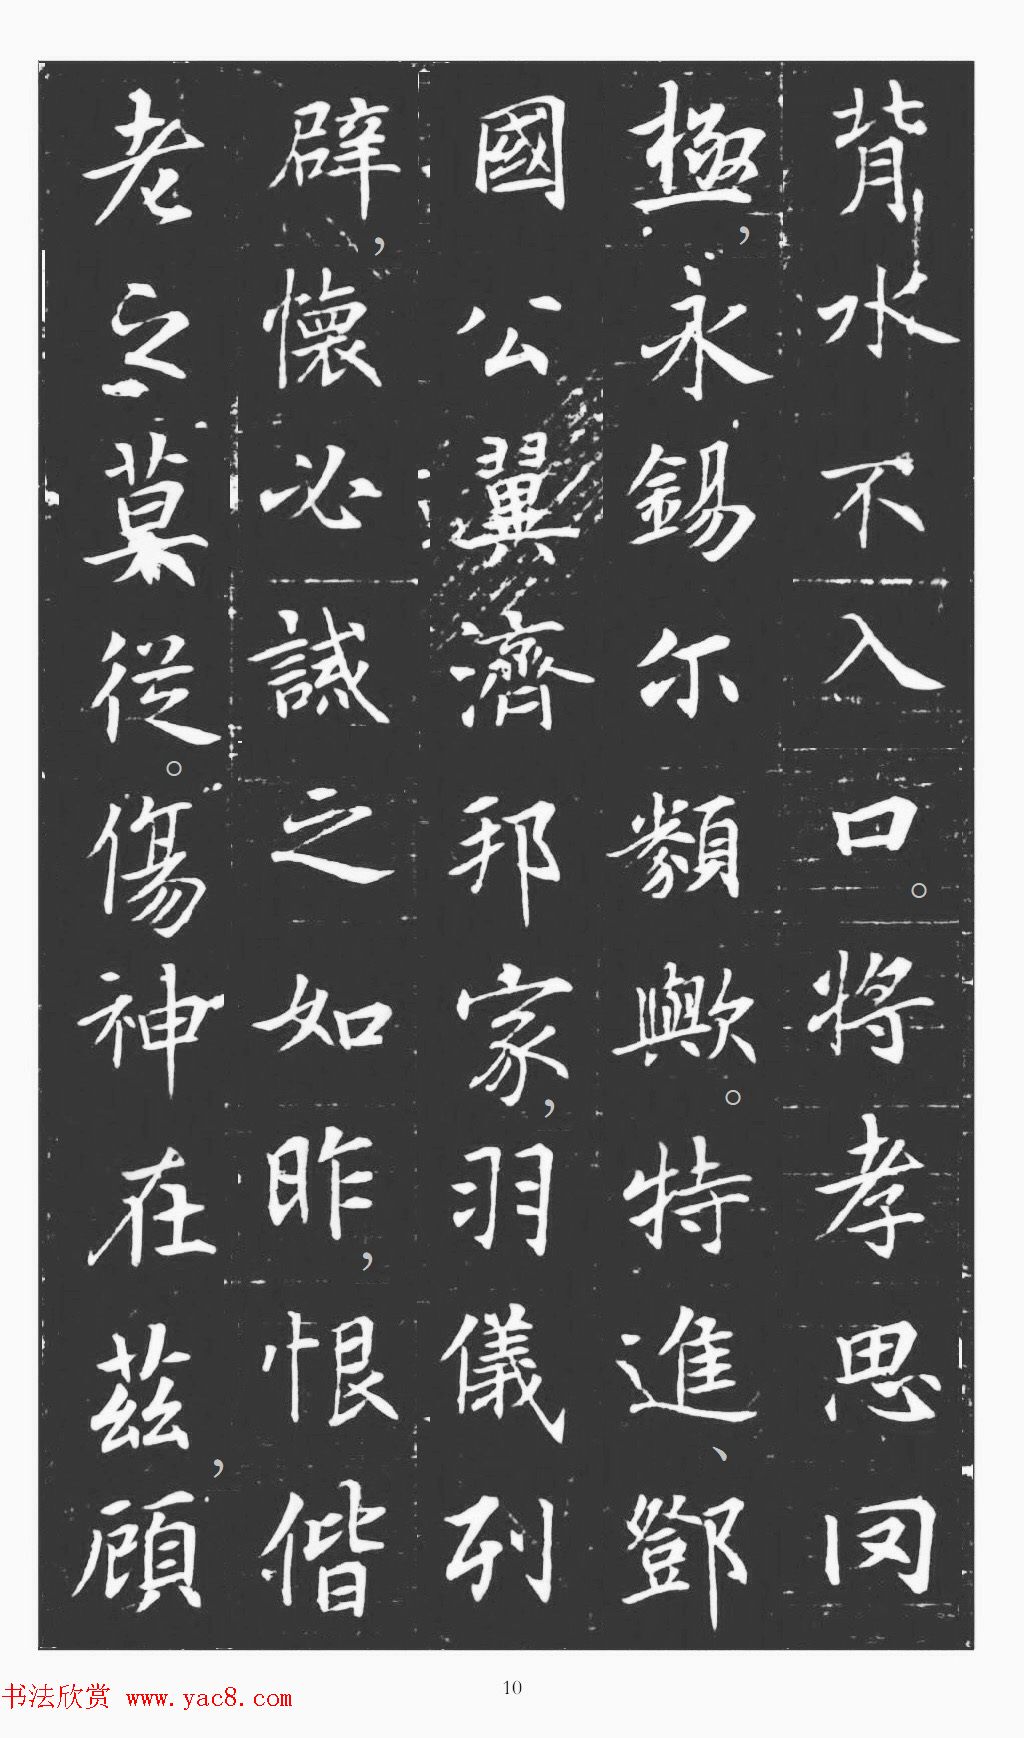 背水不入口。將孝思罔
極，永錫尔類歟。特進、鄧
國公翼濟邦家，羽儀列
辟，懷必誠之如昨，恨偕
老之莫從。傷神在茲，顧
书法欣赏 www.yac8.com
10